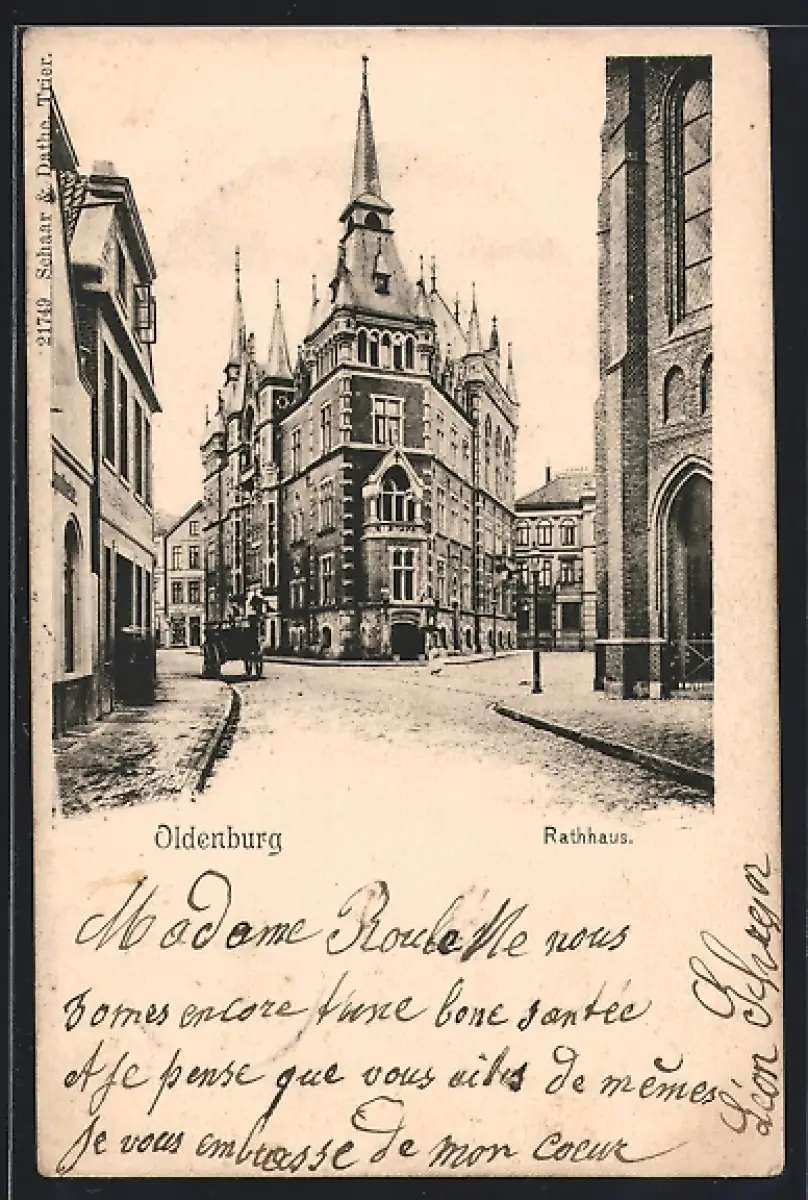 21749 Schaar & Dathe, Trier.
Oldenburg
Rathhaus.
Madame Roulette nous
somes encore tune bone santée
et Je pense que vous aites de mêmes
Je vous embrasse de mon coeur
Léon